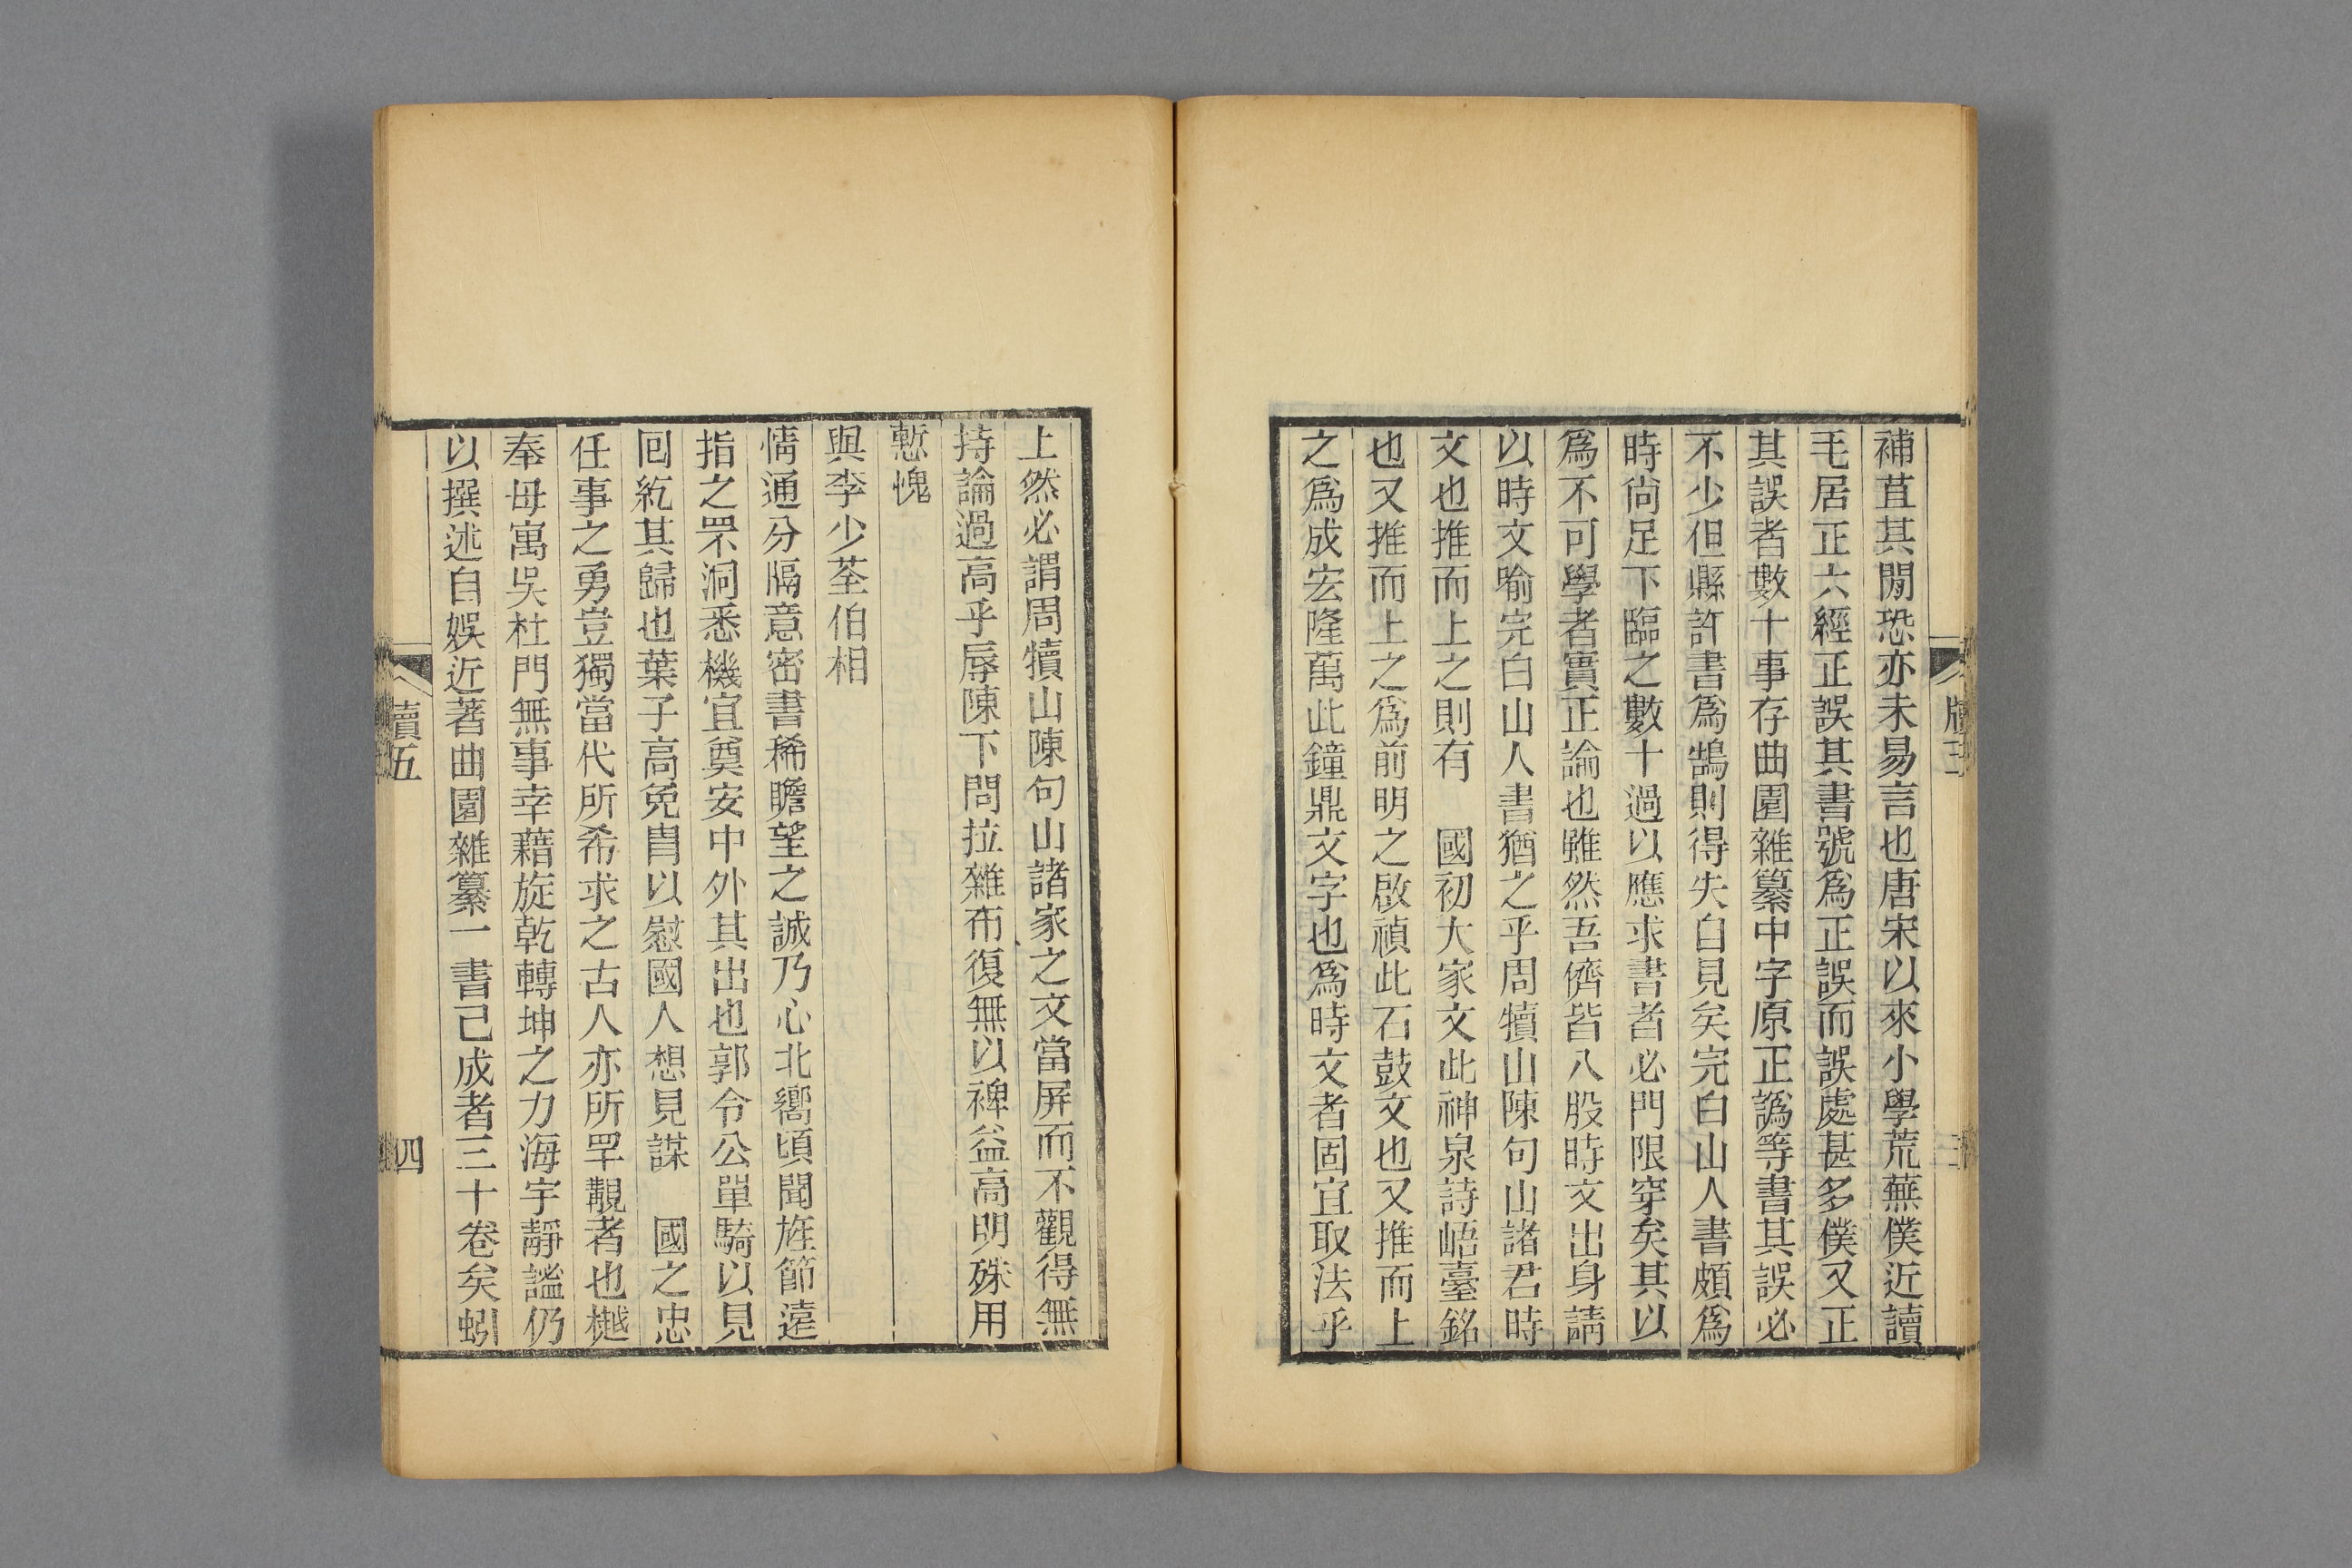 補苴其閒恐亦未易言也唐宋以來小學荒蕪僕近讀
毛居正六經正誤其書號爲正誤而誤處甚多僕又正
其誤者數十事存曲園雜纂中字原正譌等書其誤必
不少但縣許書爲鵠則得失自見矣完白山人書頗爲
時尙足下臨之數十過以應求書者必門限穿矣其以
爲不可學者實正論也雖然吾儕皆八股時文出身請
以時文喻完白山人書猶之乎周犢山陳句山諸君時
文也推而上之則有　國初大家文此神泉詩峿臺銘
也又推而上之爲前明之啟禎此石鼓文也又推而上
之爲成宏隆萬此鐘鼎文字也爲時文者固宜取法乎
上然必謂周犢山陳句山諸家之文當屏而不觀得無
持論過高乎辱陳下問拉雜布復無以裨益高明殊用
慙愧
與李少荃伯相
情通分隔意密書稀瞻望之誠乃心北嚮頃聞旌節遠
指之罘洞悉機宜奠安中外其出也郭令公單騎以見
囘紇其歸也葉子高免胄以慰國人想見謀　國之忠
任事之勇豈獨當代所希求之古人亦所罕覯者也樾
奉母寓吳杜門無事幸藉旋乾轉坤之力海宇靜謐仍
以撰述自娛近著曲園雜纂一書已成者三十卷矣蚓
牘五
四